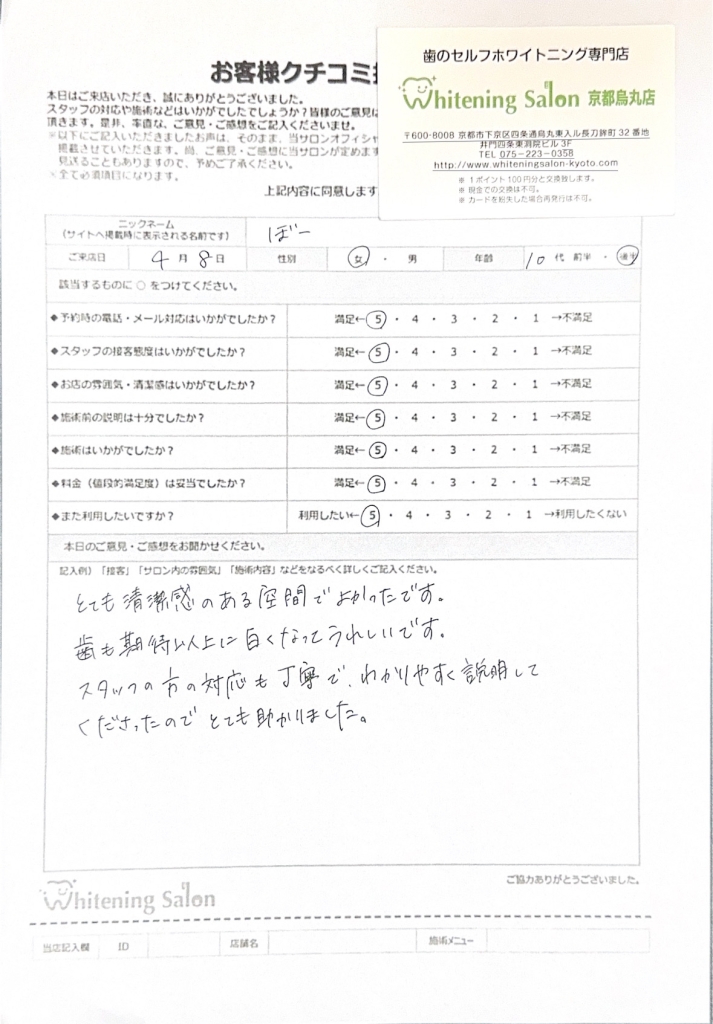 お客様クチコミ
本日はご来店いただき、誠にありがとうございました。
スタッフの対応や施術などはいかがでしたでしょうか？皆様のご意見に
頂きます。是非、率直な、ご意見・ご感想をご記入くださいませ。
※以下にご記入いただきましたお声は、そのまま、当サロンオフィシャ
掲載させていただきます。尚、ご意見・ご感想に当サロンが定めます
見送ることもありますので、予めご了承ください。
※全て必須項目になります。
上記内容に同意します
歯のセルフホワイトニング専門店
Whitening Salon 京都烏丸店
〒600-8008 京都市下京区四条通烏丸東入ル長刀鉾町 32 番地
井門四条東洞院ビル 3F
TEL 075-223-0358
http://www.whiteningsalon-kyoto.com
※ 1ポイント100円分と交換致します。
※ 現金での交換は不可。
※ カードを紛失した場合再発行は不可。
ニックネーム
（サイトへ掲載時に表示される名前です）
ぼー
ご来店日 4 月 8 日 性別 女 ・ 男 年齢 10 代 前半 ・ 後半
該当するものに ○ をつけてください。
◆予約時の電話・メール対応はいかがでしたか？ 満足←5 ・ 4 ・ 3 ・ 2 ・ 1 →不満足
◆スタッフの接客態度はいかがでしたか？ 満足←5 ・ 4 ・ 3 ・ 2 ・ 1 →不満足
◆お店の雰囲気・清潔感はいかがでしたか？ 満足←5 ・ 4 ・ 3 ・ 2 ・ 1 →不満足
◆施術前の説明は十分でしたか？ 満足←5 ・ 4 ・ 3 ・ 2 ・ 1 →不満足
◆施術はいかがでしたか？ 満足←5 ・ 4 ・ 3 ・ 2 ・ 1 →不満足
◆料金（値段的満足度）は妥当でしたか？ 満足←5 ・ 4 ・ 3 ・ 2 ・ 1 →不満足
◆また利用したいですか？ 利用したい←5 ・ 4 ・ 3 ・ 2 ・ 1 →利用したくない
本日のご意見・ご感想をお聞かせください。
記入例）「接客」「サロン内の雰囲気」「施術内容」などをなるべく詳しくご記入ください。
とても清潔感のある空間でよかったです。
歯も期待以上に白くなってうれしいです。
スタッフの方の対応も丁寧で、わかりやすく説明して
くださったのでとても助かりました。
ご協力ありがとうございました。
Whitening Salon
当店記入欄 ID 店舗名 施術メニュー